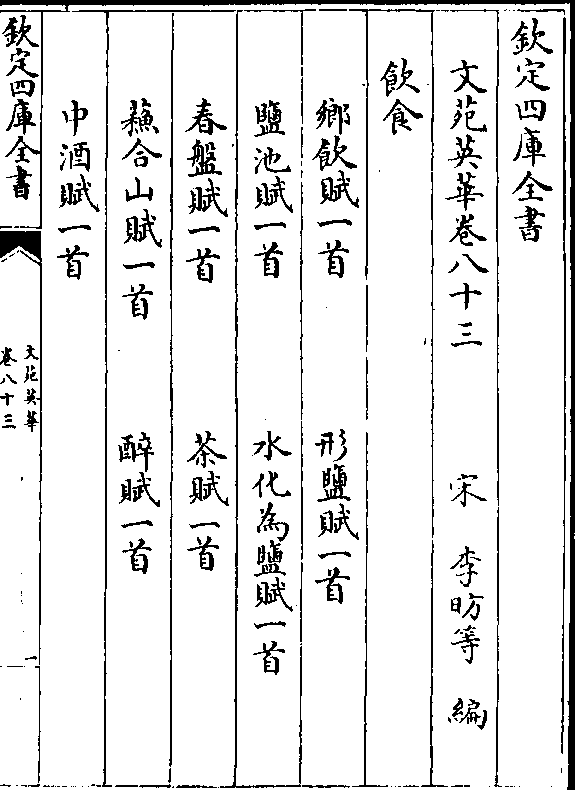 欽定四庫全書
文苑英華卷八十三　宋　李昉等　編
飲食
鄉飲賦一首　形鹽賦一首
鹽池賦一首　水化為鹽賦一首
春盤賦一首　茶賦一首
蘓合山賦一首　醉賦一首
中酒賦一首
欽定四庫全書　文苑英華
卷八十三　一